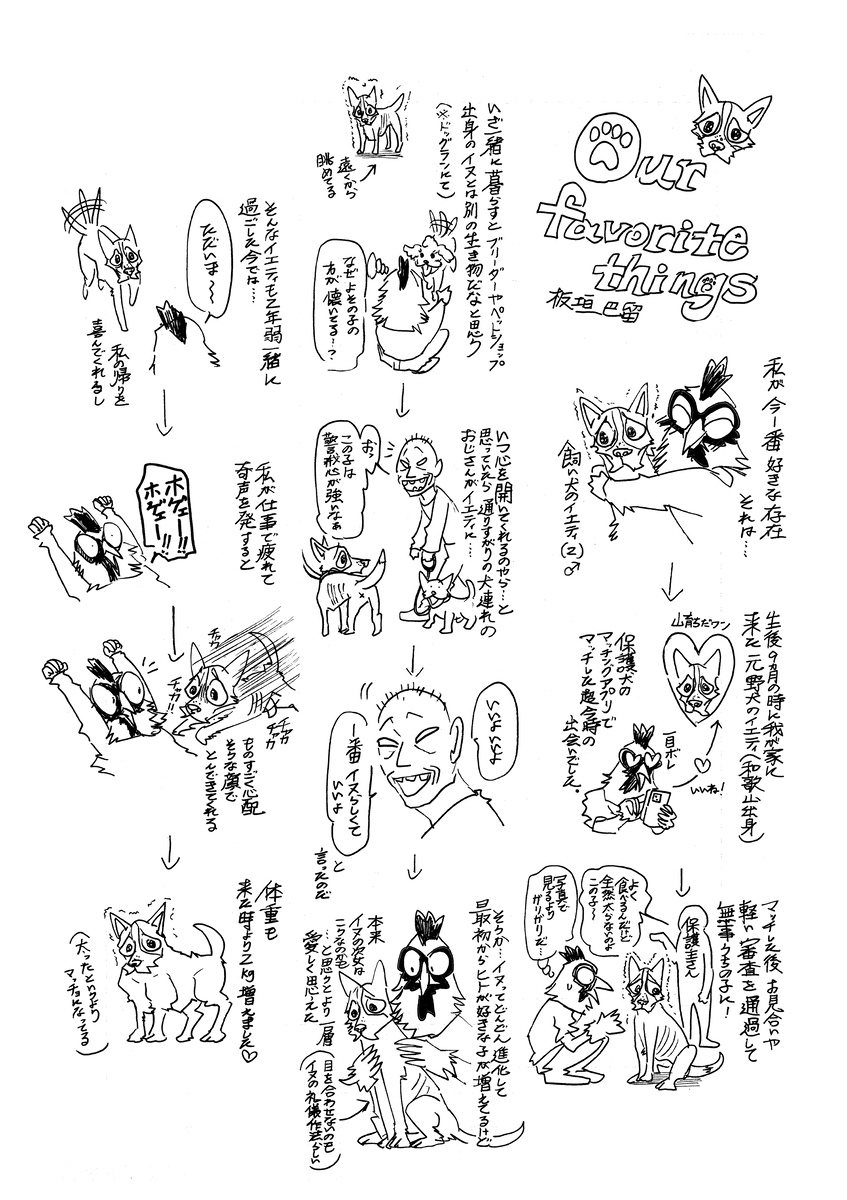 Our
favorite
things
板垣巴留
私が今一番好きな存在
それは…
飼い犬のイエティ(2)♂
生後9ヵ月の時に我が家に
来た元野犬のイエティ(和歌山出身)
山育ちだワン
保護犬の
マッチングアプリで
マッチした超今時の
出会いでした。
一目ボレ
いいね!
マッチした後、お見合いや
軽い審査を通過して
無事うちの子に!
保護主さん
よく
食べるんだけど
全然太らないのよ
この子〜
写真で
見るより
ガリガリだ…
いざ一緒に暮らすとブリーダーやペットショップ
出身のイヌとは別の生き物だなと思う
(※ドッグランにて)
遠くから
眺めてる
なぜよその子の
方が懐いてる…?
いつ心を開いてくれるのやら…と
思っていたら通りすがりの犬連れの
おじさんがイエティに…
おっ
この子は
警戒心が強いなぁ
いいよいいよ
一番イヌらしくて
いいよ
と
言ったのだ
そうか…イヌってどんどん進化して
最初からヒトが好きな子が増えてるけど
本来
イヌの次女は
こうなのか
…と思うとより一層
愛しく思えた
(目を合わせないのも
イヌの礼儀作法らしい)
そんなイエティも2年弱一緒に
過ごした今では…
ただいま〜
私の帰りを
喜んでくれるし
私が仕事で疲れて
奇声を発すると
ホゲェー!!
ホゲェー!!
チャカ
チャカ!!
チャカ
チャカ
ものすごく心配
そうな顔で
とんできてくれる
体重も
来た時より2kg増えました♡
(太ったというより
マッチョになってる)